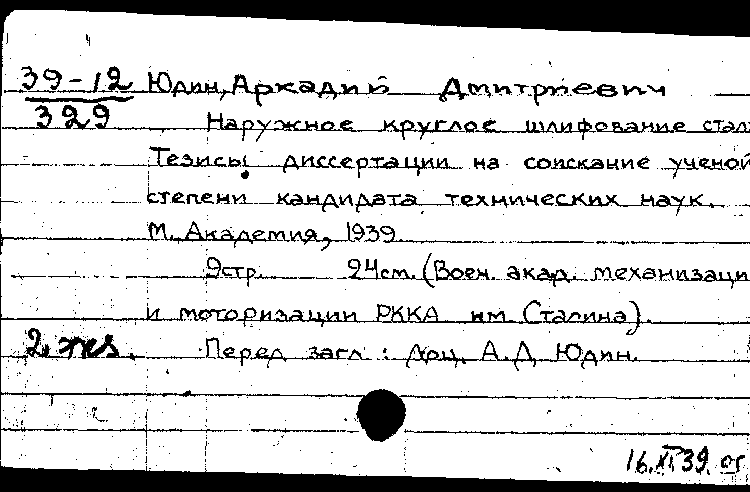 39-12 Юдин, Аркадий Дмитриевич
329
Наружное круглое шлифование стал
Тезисы диссертации на соискание ученой
степени кандидата технических наук.
М. Академия, 1939.
9стр. 24см. (Воен. акад. механизаци
и моторизации РККА им. Сталина).
2 экз. Перед загл.: Доц. А.Д. Юдин.
16.XI 39.